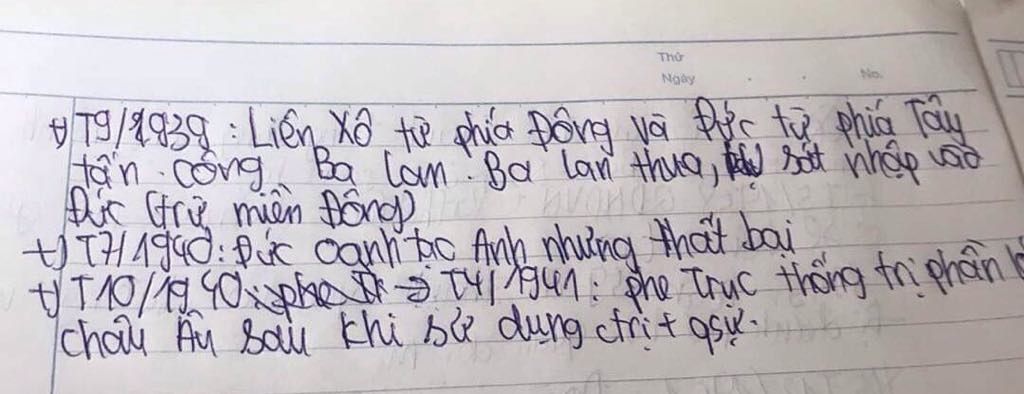 Thứ
Ngày No.
+) T9/1939: Liên Xô từ phía Đông và Đức từ phía Tây
tấn công Ba Lan. Ba Lan thua, sát nhập vào
Đức (trừ miền Đông)
+) T7/1940: Đức oanh tạc Anh nhưng thất bại
+) T10/1940: phe → T4/1941: phe Trục thống trị phần
châu Âu sau khi sử dụng ctrị + qsự.